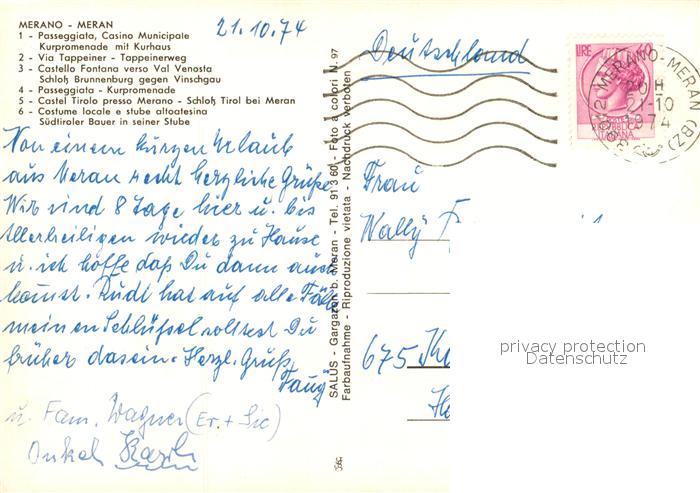 MERANO - MERAN
1 - Passeggiata, Casino Municipale
Kurpromenade mit Kurhaus
2 - Via Tappeiner - Tappeinerweg
3 - Castello Fontana verso Val Venosta
Schloß Brunnenburg gegen Vinschgau
4 - Passeggiata - Kurpromenade
5 - Castel Tirolo presso Merano - Schloß Tirol bei Meran
6 - Costume locale e stube altoatesina
Südtiroler Bauer in seiner Stube
21.10.74
Von einem kurzen Urlaub
aus Meran recht herzliche Grüße
Wir sind 8 Tage hier u. bis
Allerheiligen wieder zu Hause
u. ich hoffe daß Du dann auch
kommst. Rudi hat auf alle Fäll
meinen Schlüssel solltest Du
früher dasein. Herzl. Gruß
u. Fam. Wagner (Er + Sie)
Onkel
SALUS - Gargazon b. Meran - Tel. 91 3 60 - Foto a colori N. 97
Farbaufnahme - Riproduzione vietata - Nachdruck verboten
Deutschland
LIRE 50
REPUBBLICA
ITALIANA
39012 MERANO-MERAN (BZ)
21-10
1974
Frau
Wally F
675
privacy protection
Datenschutz